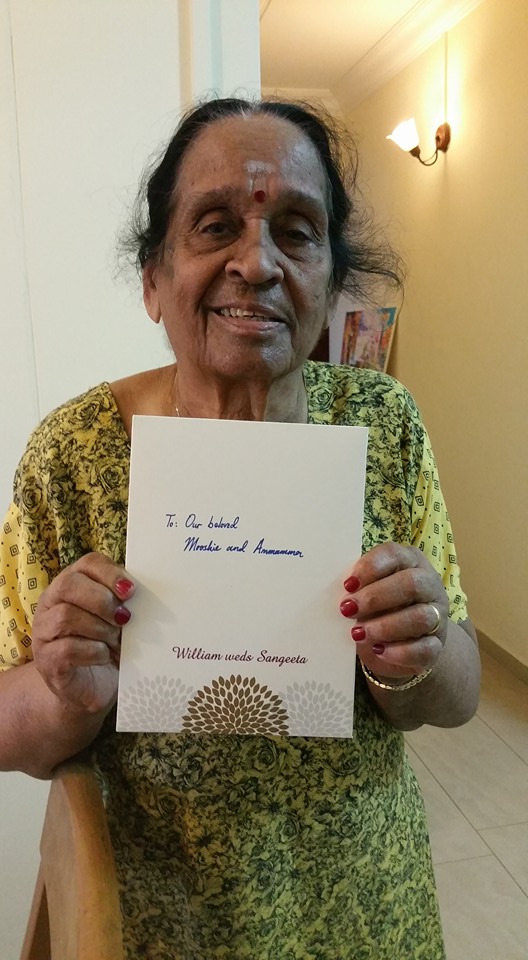 To: Our beloved
Mooshie and Ammamma
William weds Sangeeta